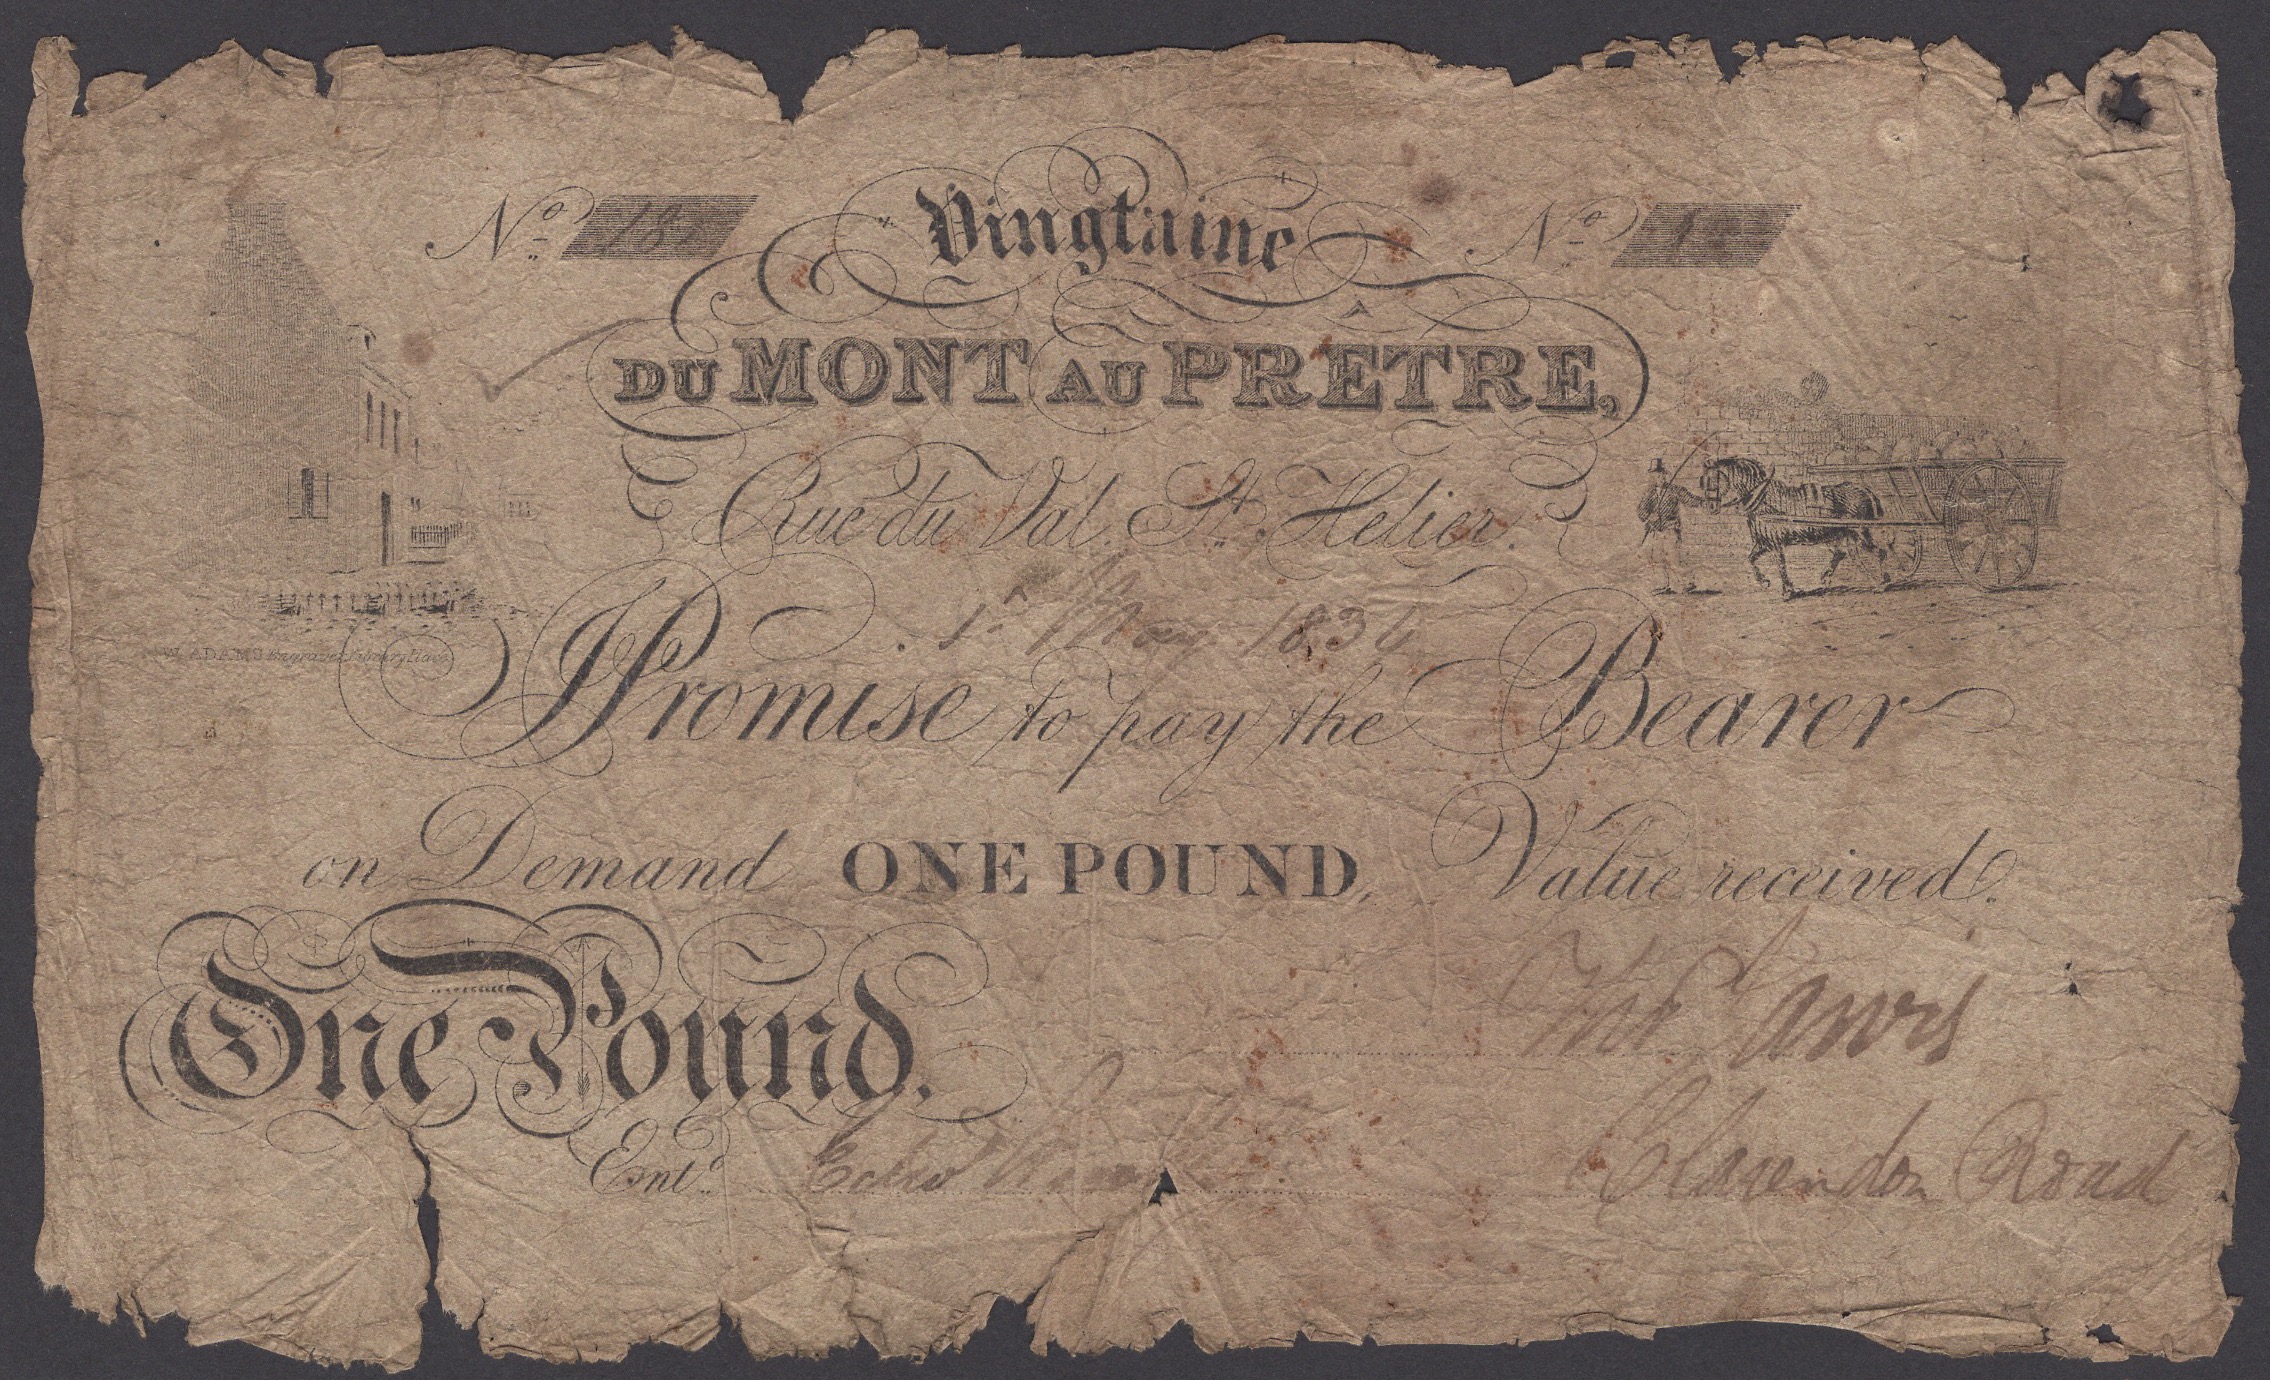 No 18 Vingtaine No 1
DU MONT AU PRÊTRE,
Rue du Val St. Helier.
1st May 183
I Promise to pay the Bearer
on Demand ONE POUND, Value received.
W. ADAMS Engraver Library Place
One Pound.
Wm
Entd. Clarendon Road